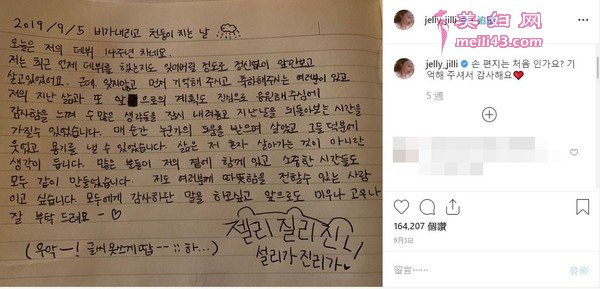 2019/9/5 비가내리고 천둥이 치는 날
오늘은 저의 데뷔 14주년 차네요.
저는 최근 언제 데뷔를 했는지도 잊어버릴 정도로 정신없이 앞만보고
살고있었어요. 근데, 잊지않고 먼저 기억해 주시고 축하해주시는 여러분이 있고
저의 지난 삶과 또 앞으로의 계획도 진심으로 응원해주심에
감사함을 느껴 수많은 생각들을 잠시 내려놓고 지난날을 뒤돌아보는 시간을
가질수 있었습니다. 매 순간 누군가의 도움을 받으며 살았고 그들 덕분에
웃었고 용기를 낼 수 있었습니다. 삶은 저 혼자 살아가는 것이 아니란
생각이 듭니다. 많은 분들이 저의 곁에 함께 있고 소중한 시간들도
모두 같이 만들었습니다. 저도 여러분께 따뜻함을 전할수 있는 사람
이고 싶습니다. 모두에게 감사하단 말을 하고싶고 앞으로도 미우나 고우나
잘 부탁 드려요~ ♡
(우악ㅡ! 글씨 못쓰게땀 --;; 하...)
젤리 질리 진리
설리가 진리가♥
jelly_jilli
美妇网
meili43.com
jelly_jilli 손 편지는 처음 인가요? 기억해 주셔서 감사해요❤
5 週
164,207 個讚
9月5日
留言⋯⋯
發佈